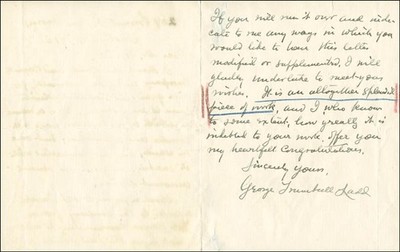 If you will run it over and indi-
cate to me any ways in which you
would like to have this letter
modified or supplemented, I will
gladly undertake to meet your
wishes. It is an altogether splendid
piece of work, and I, who know
to some extent, how greatly it is
indebted to your work, offer you
my heartfelt congratulations.
Sincerely yours,
George Trumbull Ladd